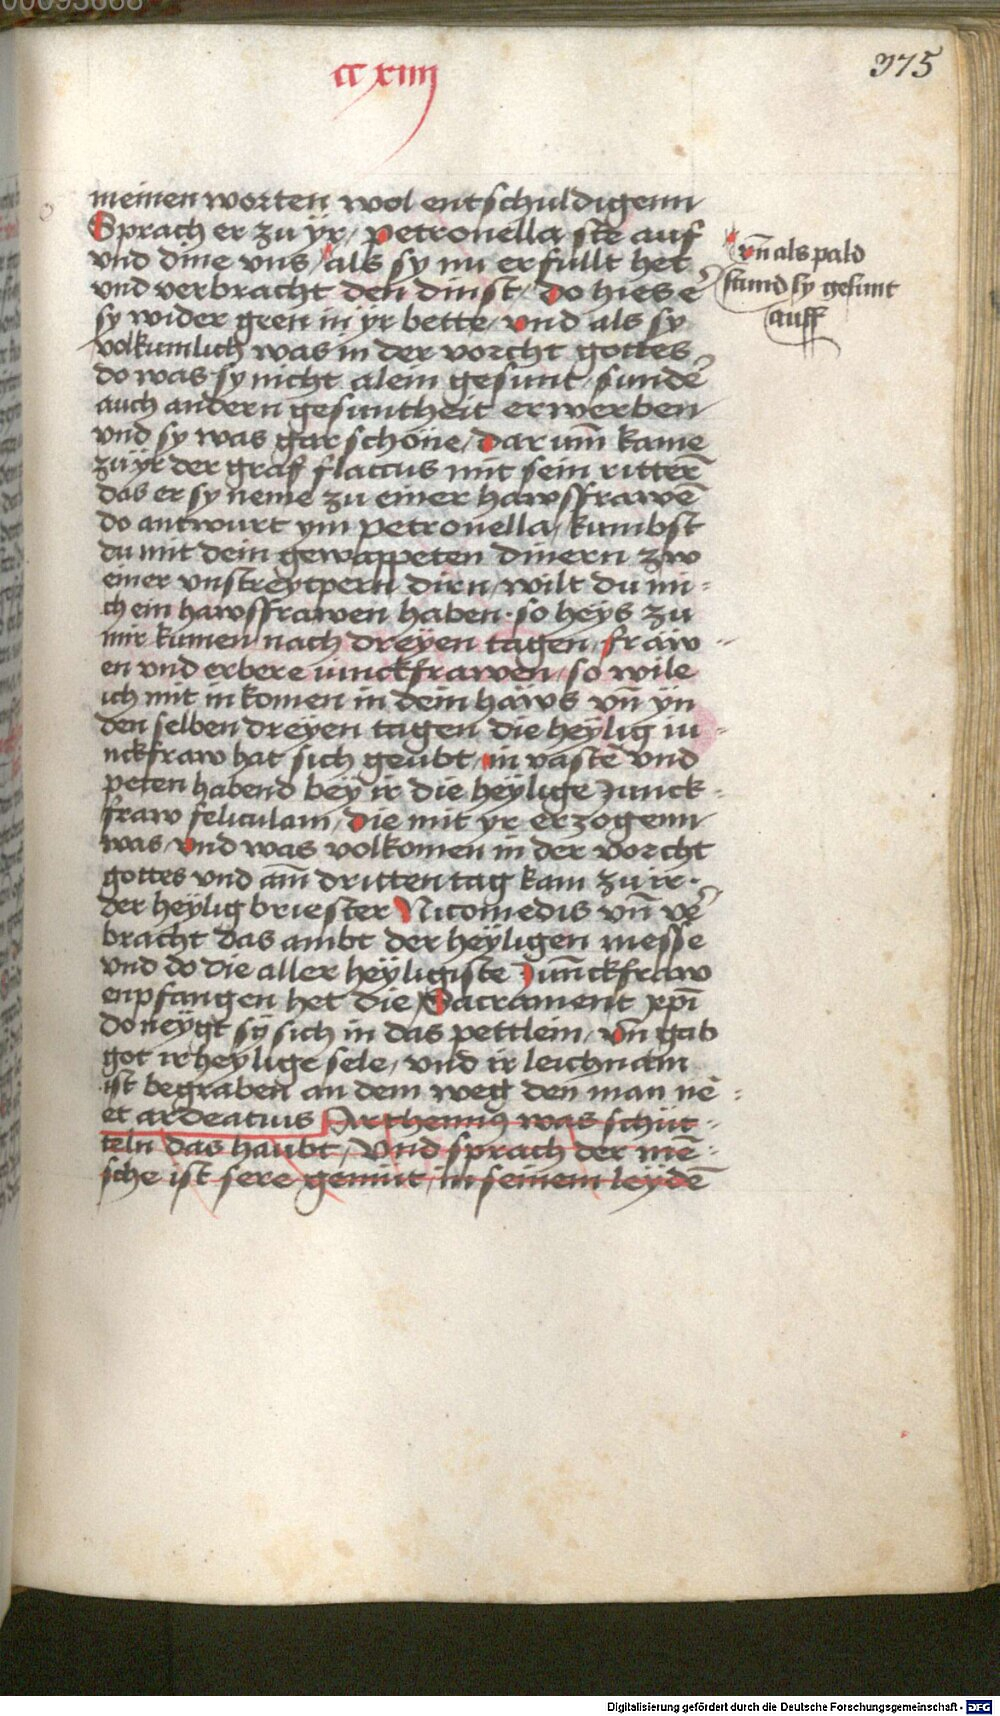 00093668
cc xiiij
375
meinen worten wol entschuldigenn
Sprach er zu ÿr / petronella ste auf
vnd dine vns / als sy nu erfullt het
vnd verbracht den dinst / do hies e᷑
sy wider geen in yr bette / vnd als sy
volkumlich was in der vorcht gottes
do was sy nicht alein gesunt / sunde᷑
auch andern gesuntheit erwerben
vnd sy was gar schöne / dar um̄ kame
zu ÿr der graf flaccus mit sein ritterē
das er sy neme zu einer hawsfrawē
do antwurt ym petronella / kumbst
du mit dein gewappeten dinern zw
einer vnstreÿtpern dirn / wilt du mi=
ch ein hawsfrawen haben · so heÿs zu
mir kumen nach dreÿen tagen / fraẅ=
en vnd erbere iunckfrawen / so wile
ich mit in komen in dein haẅs vn̄ ÿn
den selben dreÿen tagen die heÿlig iu=
nckfraw hat sich geubt / in vastē vnd
peten habend beÿ ir die heÿlige Junck=
fraw feliculam / die mit yr erzogenn
was / vnd was volkomen in der vorcht
gottes vnd am̄ dritten tag kam zu ir ·
der heÿlig briester Nicomedis vn̄ ve᷑
bracht das ambt der heÿligen messe
vnd do die aller heÿligiste Jun̄ckfraw
enpfangen het die Sacrament xp̄i
do neÿgt sÿ sich in das pettlein / vn̄ gab
got ir heÿlige sele / vnd ir leichnam
ist begraben an dem weg den man nē=
et ardeatius Parthemiꝰ was schüt=
teln das haubt / Vnd sprach der mē=
sche ist sere gemüt / in seinem leÿdē
vn̄ als pald
stund sy gesunt
auff
Digitalisierung gefördert durch die Deutsche Forschungsgemeinschaft - DFG